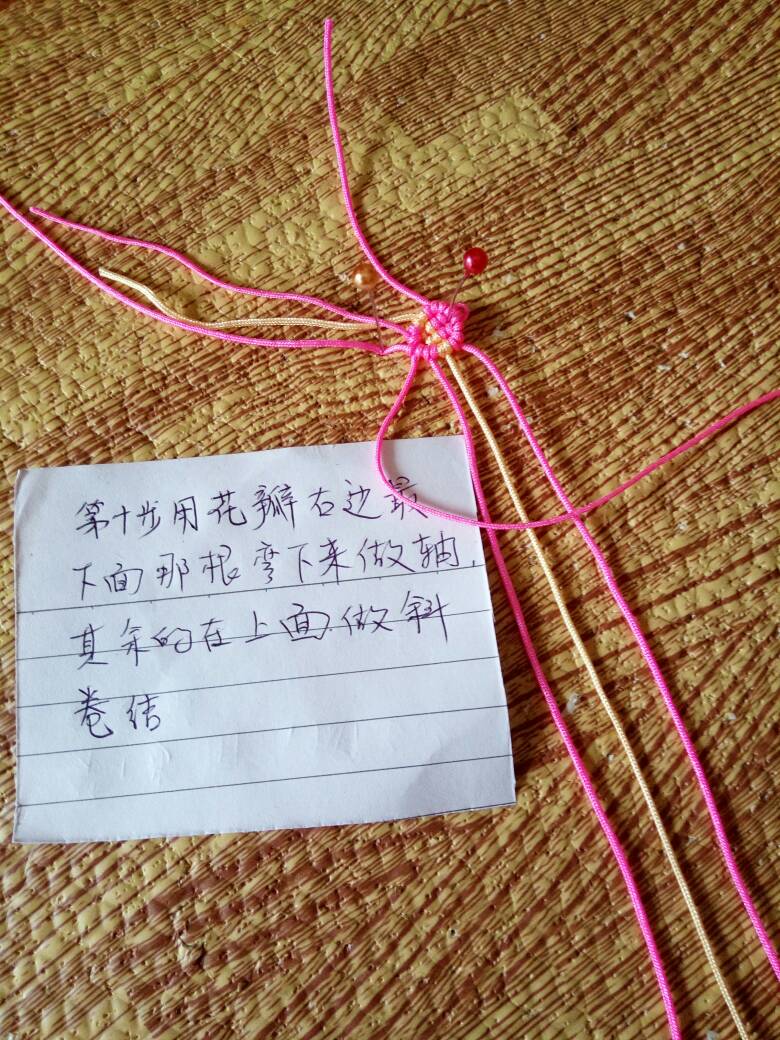 第十步用花瓣右边最
下面那根弯下来做轴.
其余的在上面做斜
卷结